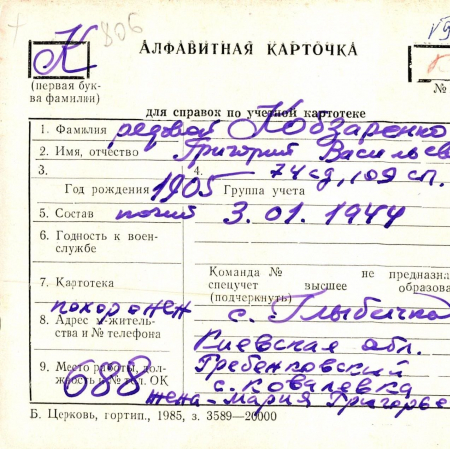 К 806
АЛФАВИТНАЯ КАРТОЧКА
(первая бук-
ва фамилии)
№
для справок по учетной картотеке
1. Фамилия рядовой Кобзаренко
2. Имя, отчество Григорий Васильев
3. 4. 74 сд, 109 сп.
Год рождения 1905 Группа учета
5. Состав погиб 3.01.1944
6. Годность к воен-
службе
Команда № не предназна
7. Картотека спецучет высшее образова
(подчеркнуть)
похоронен с. Глыбочка
8. Адрес м-житель-
ства и № телефона
Киевская обл.
9. Место работы, дол-
жность и № тел. ОК
Гребенковский
688 с. Ковалевка
жена - Мария Григорье
Б. Церковь, гортип., 1985, з. 3589—20000